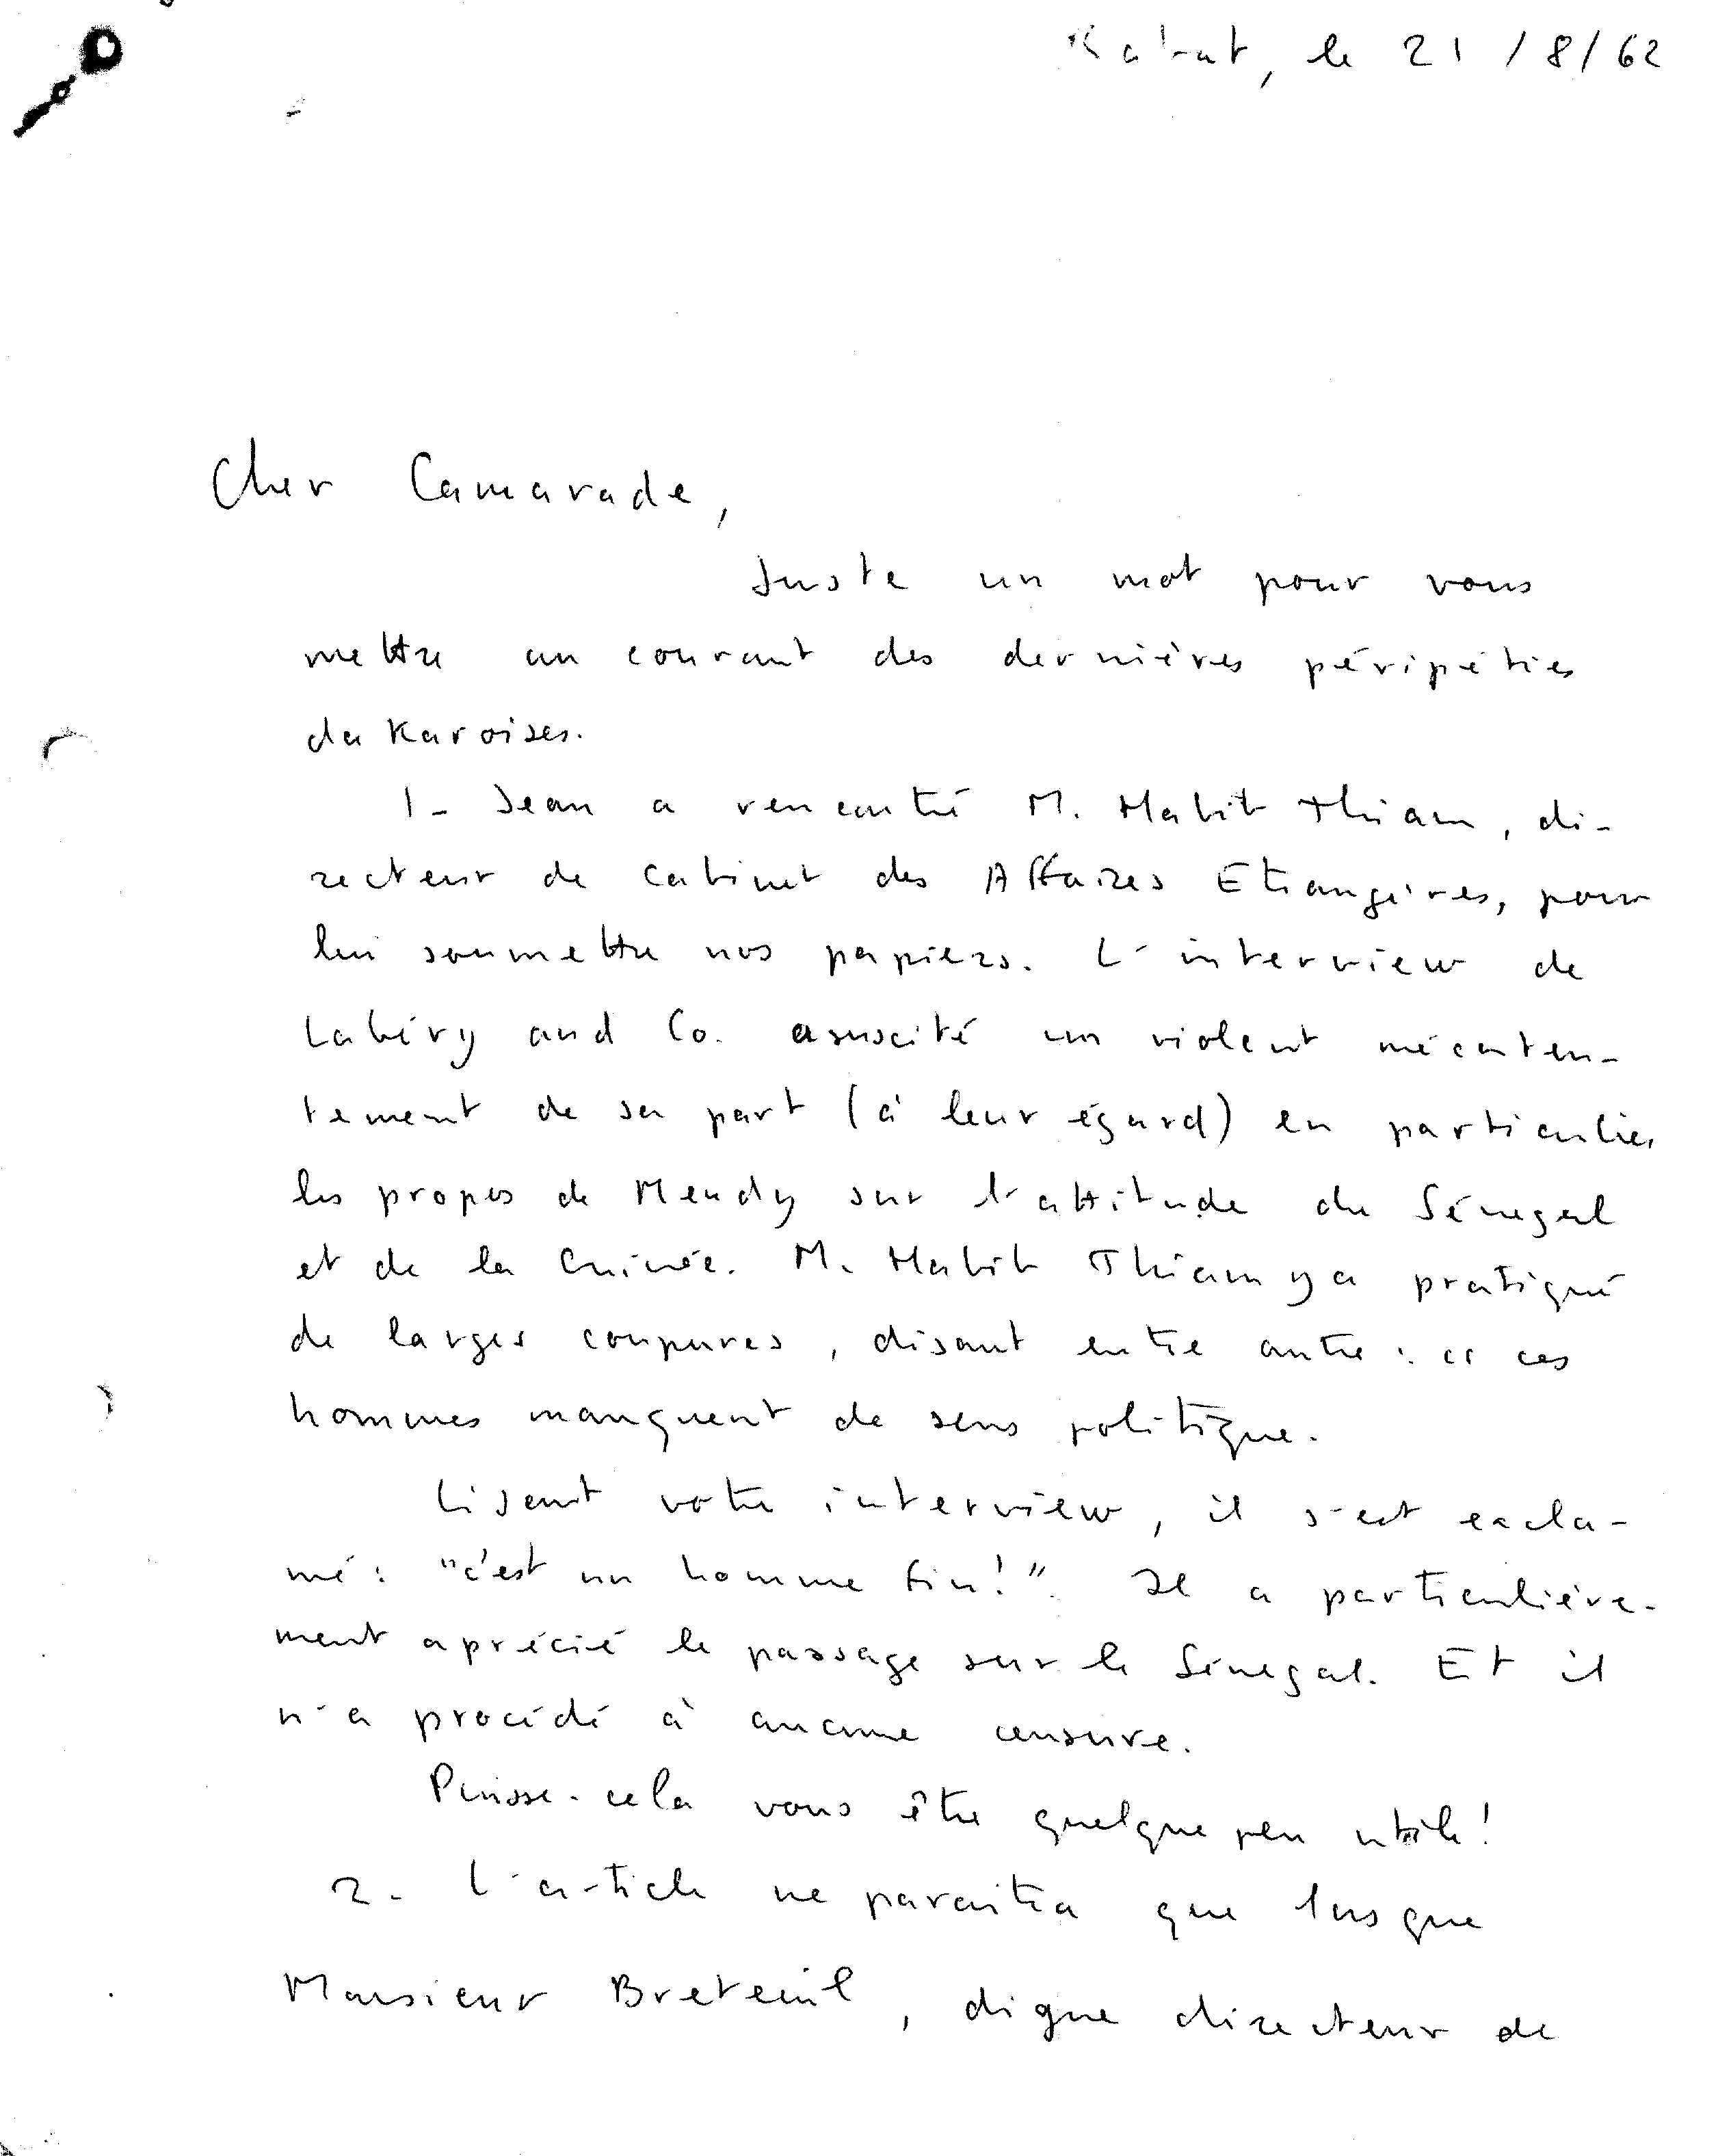 Rabat, le 21/8/62
Cher Camarade,
Juste un mot pour vous
mettre au courant des dernières péripéties
dakaroises.
1- Jean a rencontré M. Habib Thiam, di-
recteur de cabinet des Affaires Etrangères, pour
lui soumettre nos papiers. L'interview de
Labéry and Co. a suscité un violent méconten-
tement de sa part (à leur égard) en particulier
les propos de Mendy sur l'attitude du Sénégal
et de la Guinée. M. Habib Thiam y a pratiqué
de larges coupures, disant entre autre : " ces
hommes manquent de sens politique.
Lisant votre interview, il s'est excla-
mé : "c'est un homme fin!". Il a particulière-
ment aprécié le passage sur le Sénégal. Et il
n'a procédé à aucune censure.
Puisse-cela vous être quelque peu utile!
2- L'article ne paraitra que lorsque
Monsieur Breteuil, digne directeur de